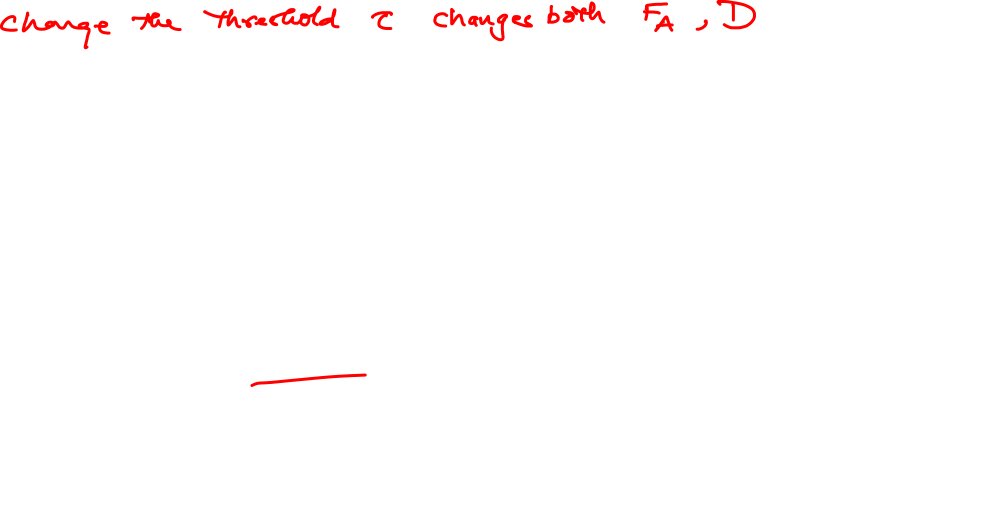 Change the threshold τ changes both F_A, D